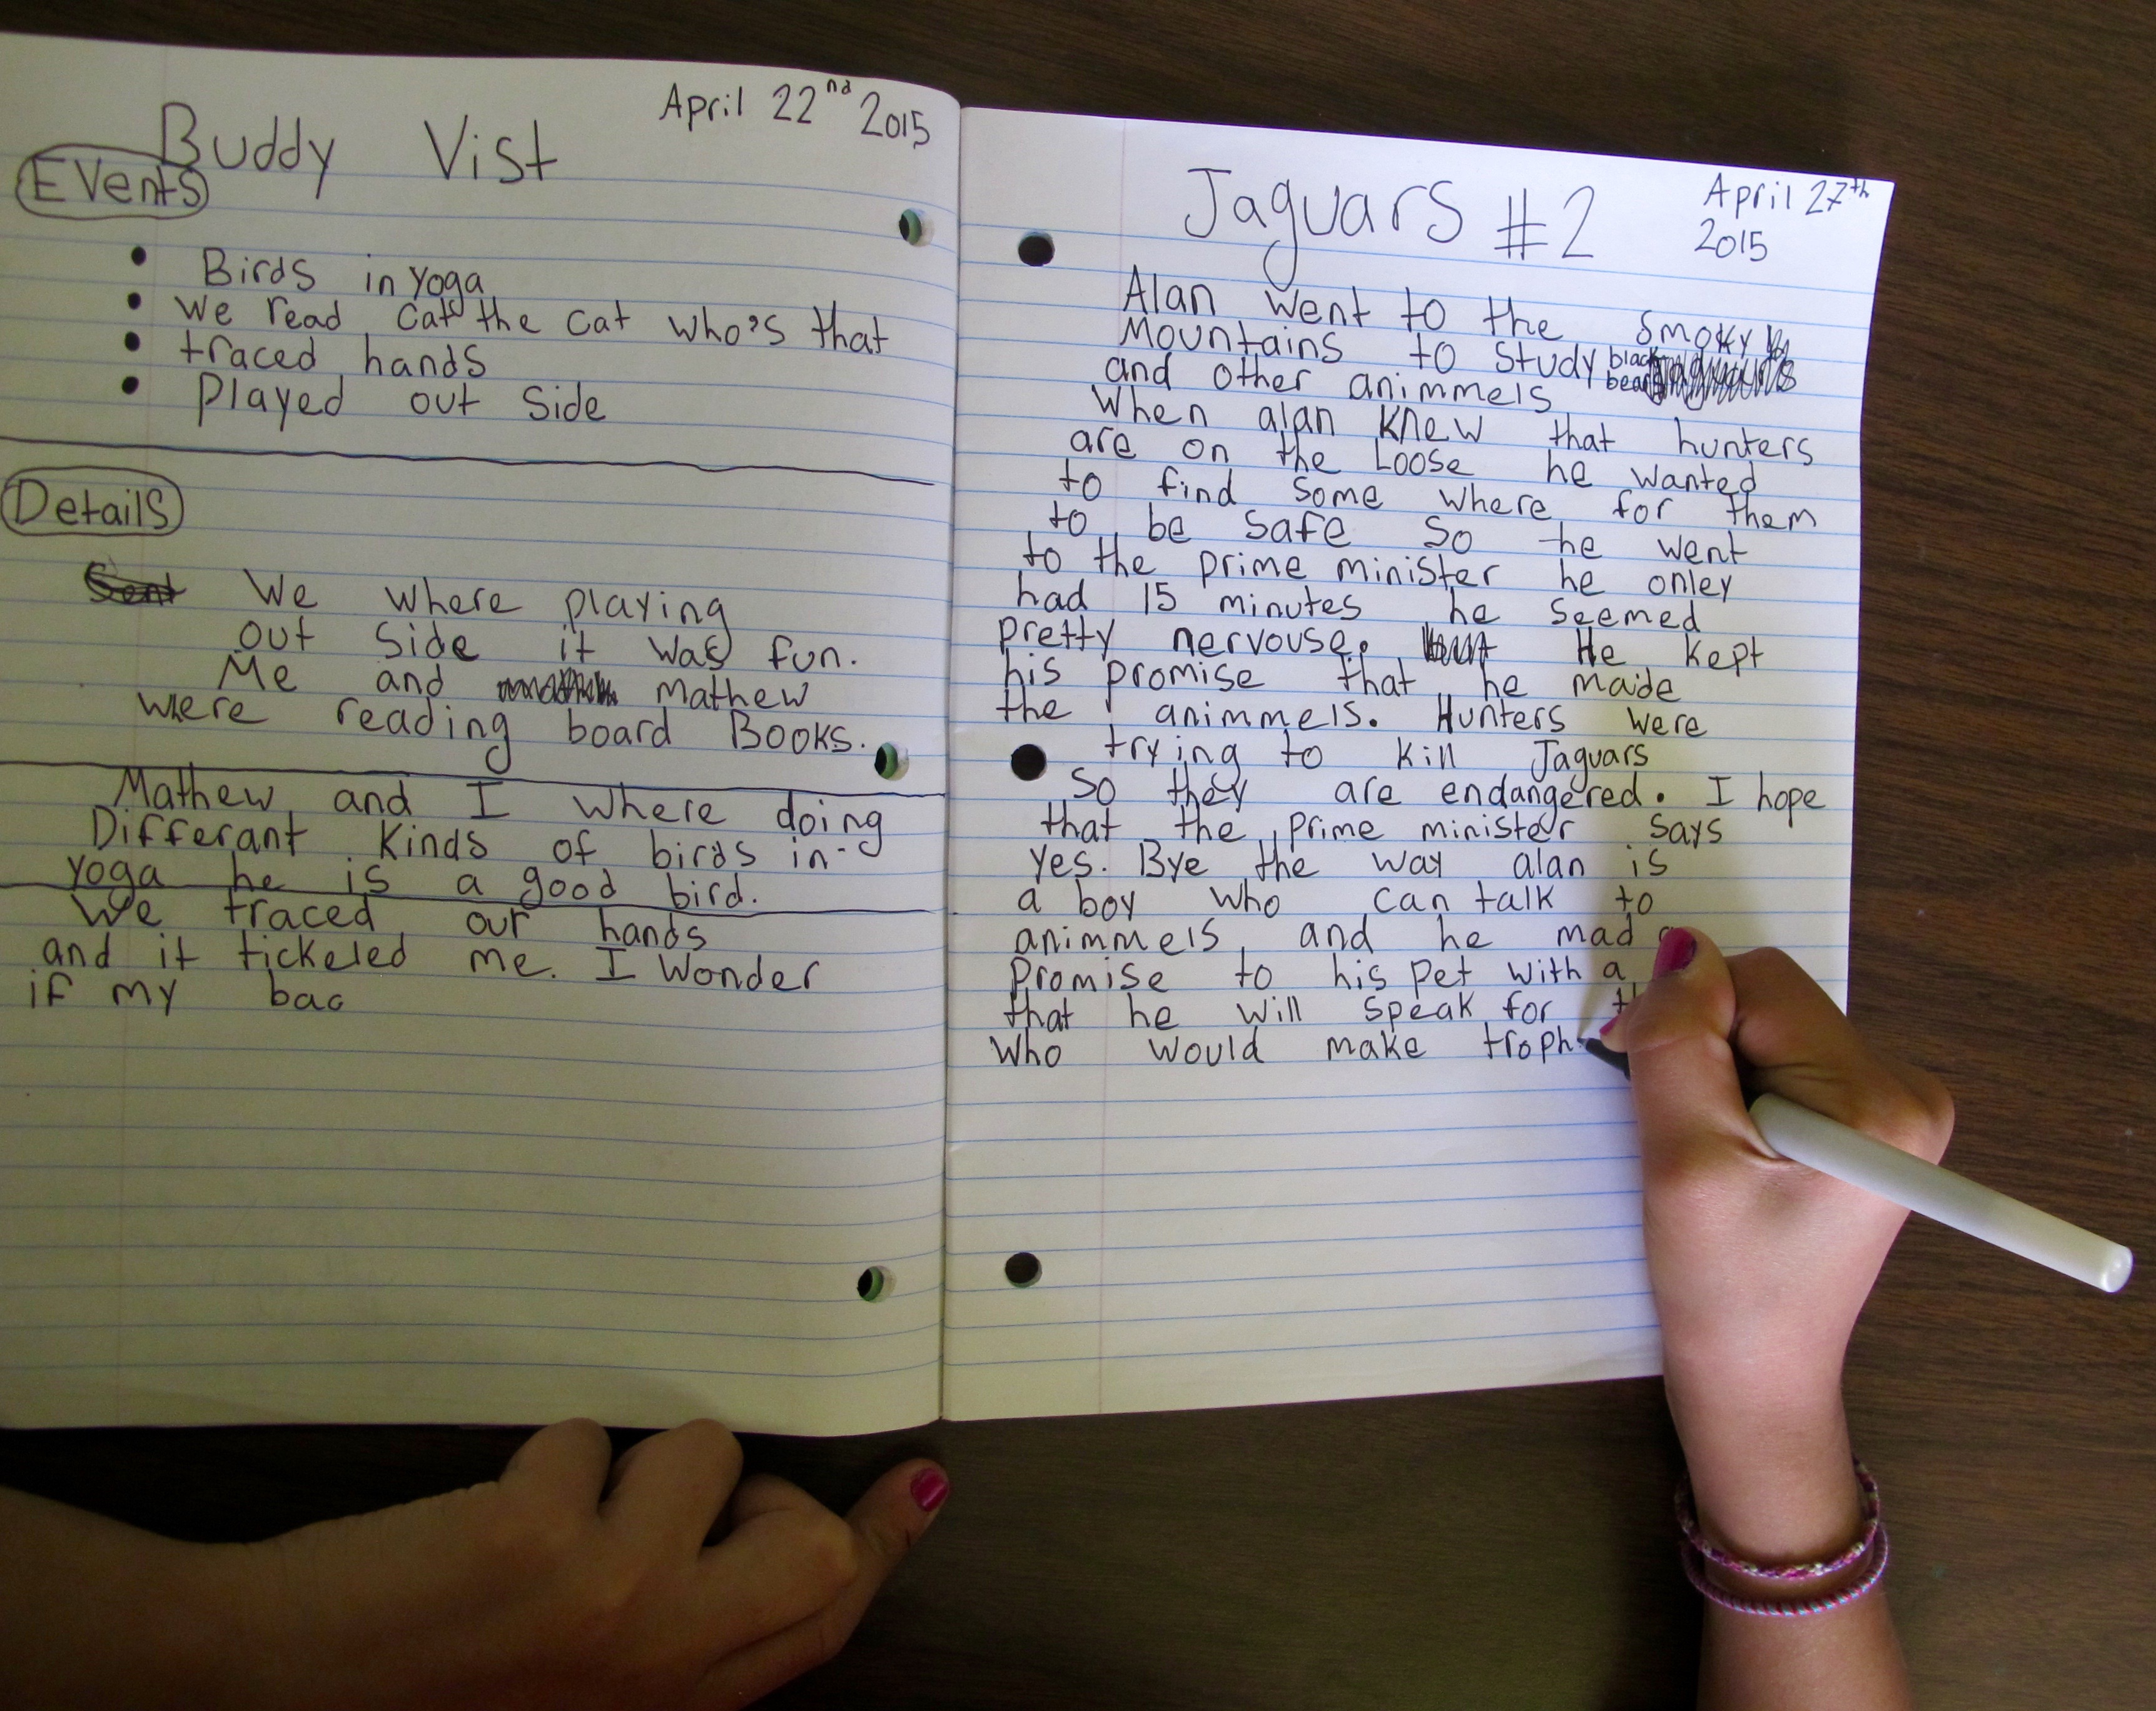 Buddy Vist
April 22nd 2015
Events
• Birds in yoga
• We read cat the cat who's that
• traced hands
• Played out side
Details
We where playing
out side it was fun.
Me and mathew
were reading board Books.
Mathew and I where doing
Differant kinds of birds in-
yoga he is a good bird.
We traced our hands
and it tickeled me. I wonder
if my bac
Jaguars #2
April 27th
2015
Alan went to the Smoky
Mountains to study black bears
and other animmels
When alan knew that hunters
are on the Loose he wanted
to find some where for them
to be safe so he went
to the prime minister he onley
had 15 minutes he seemed
pretty nervouse. He kept
his promise that he made
the animmels. Hunters were
trying to kill Jaguars
So they are endangered. I hope
that the prime minister says
yes. Bye the way alan is
a boy who can talk to
animmels, and he mad
promise to his pet with a
that he will speak for
who would make troph